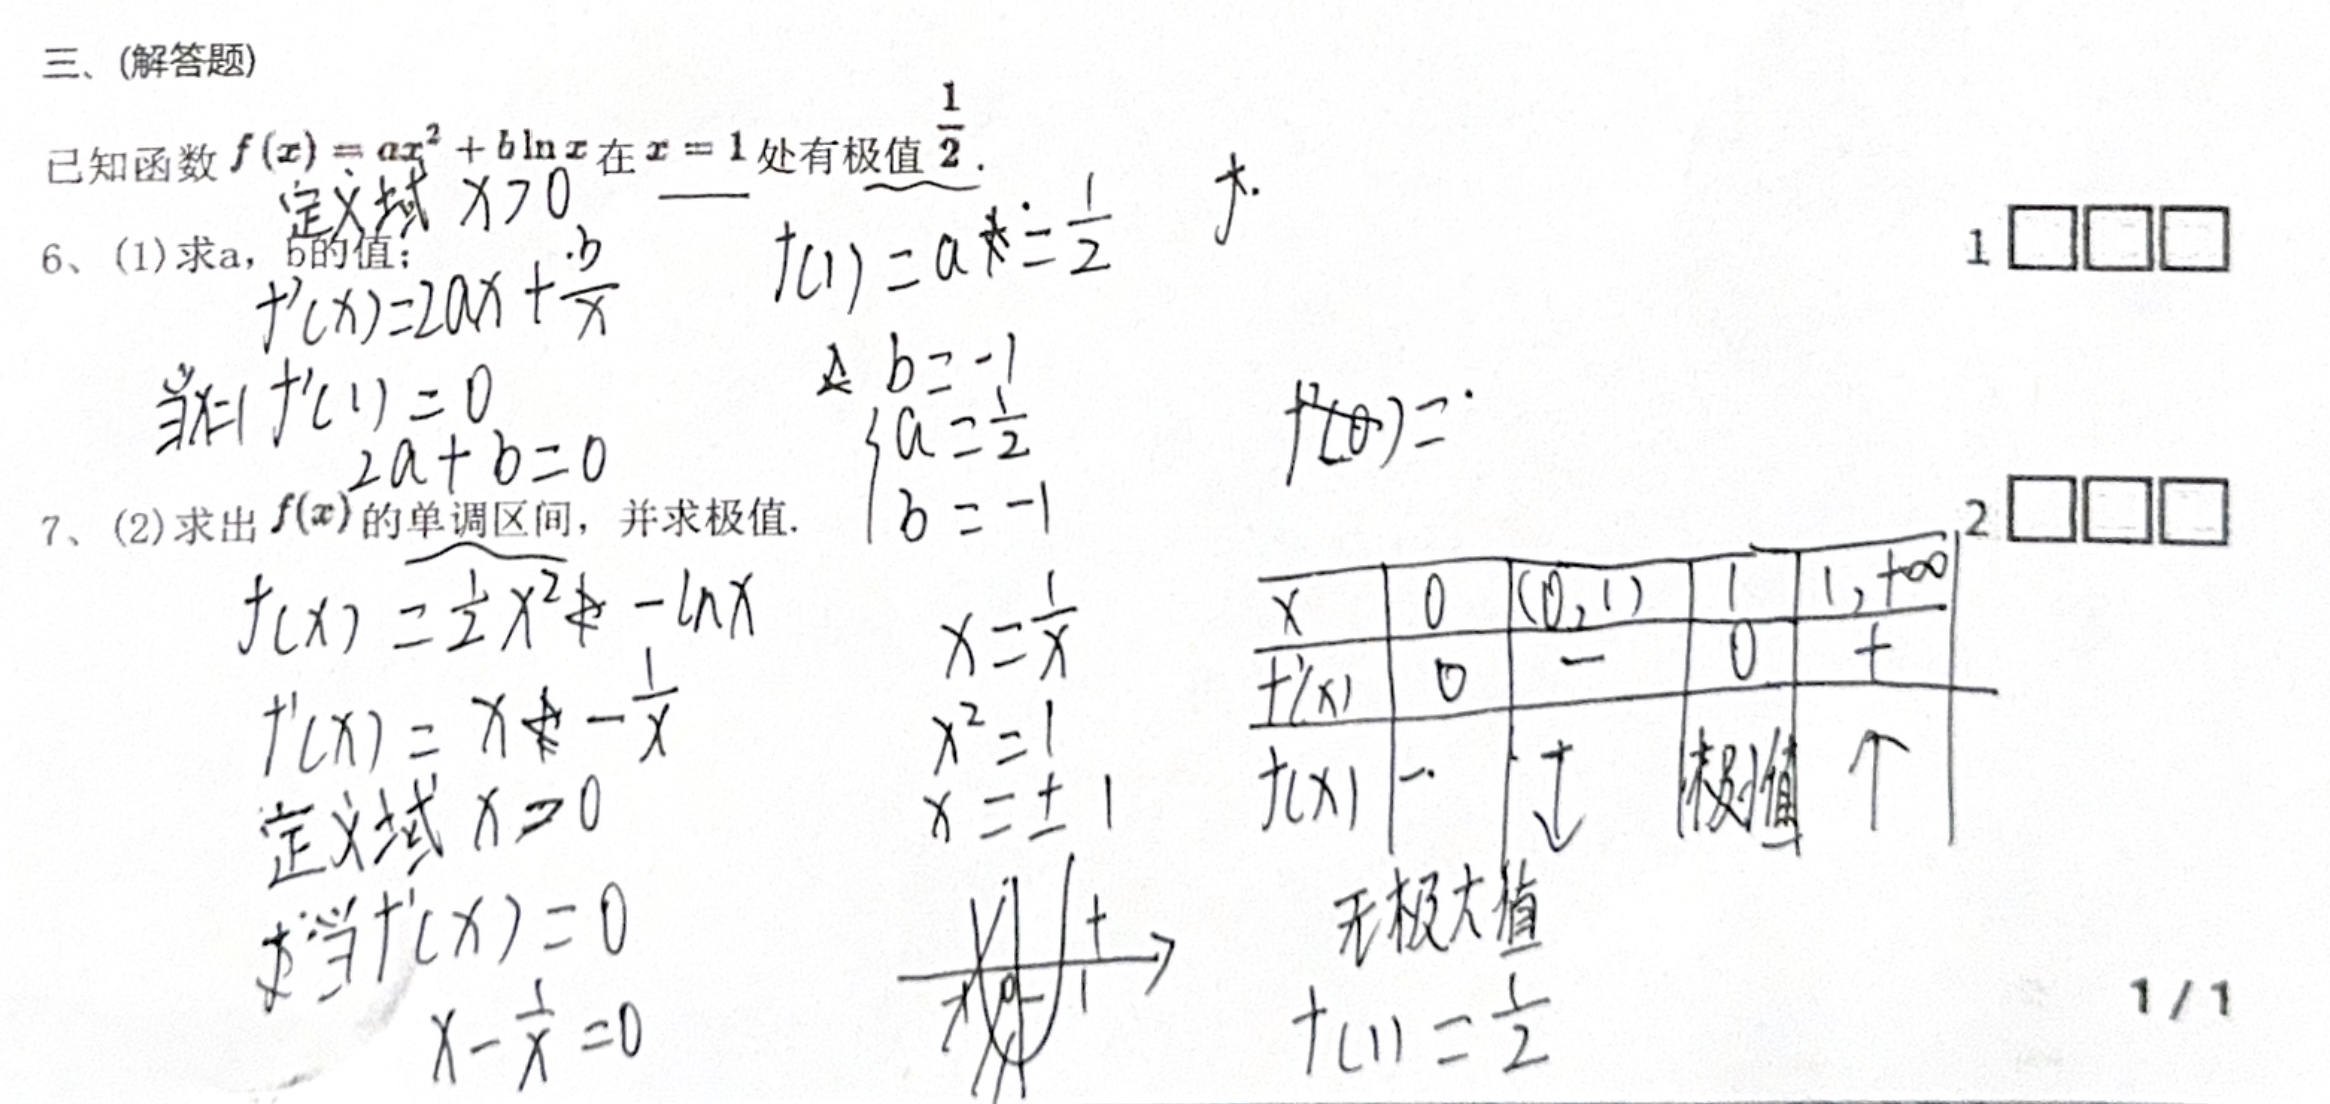 三、(解答题)
已知函数 f(x) = ax² + b ln x 在 x = 1 处有极值 1/2 .
定义域 x>0
6、(1)求a，b的值;
f'(x)=2ax+b/x
当x=1 f'(1)=0
2a+b=0
f(1)=a=1/2
b=-1
{a=1/2
b=-1
f'(0)=
1 □□□
7、(2)求出 f(x) 的单调区间，并求极值.
2 □□□
f(x)=1/2x²-lnx
f'(x)=x-1/x
定义域 x>0
当f'(x)=0
x-1/x=0
x=1/x
x²=1
x=±1
+
-1 0 1
x 0 (0,1) 1 1,+∞
f'(x) 0 - 0 +
f(x) - ↓ 极值 ↑
无极大值
f(1)=1/2
1 / 1